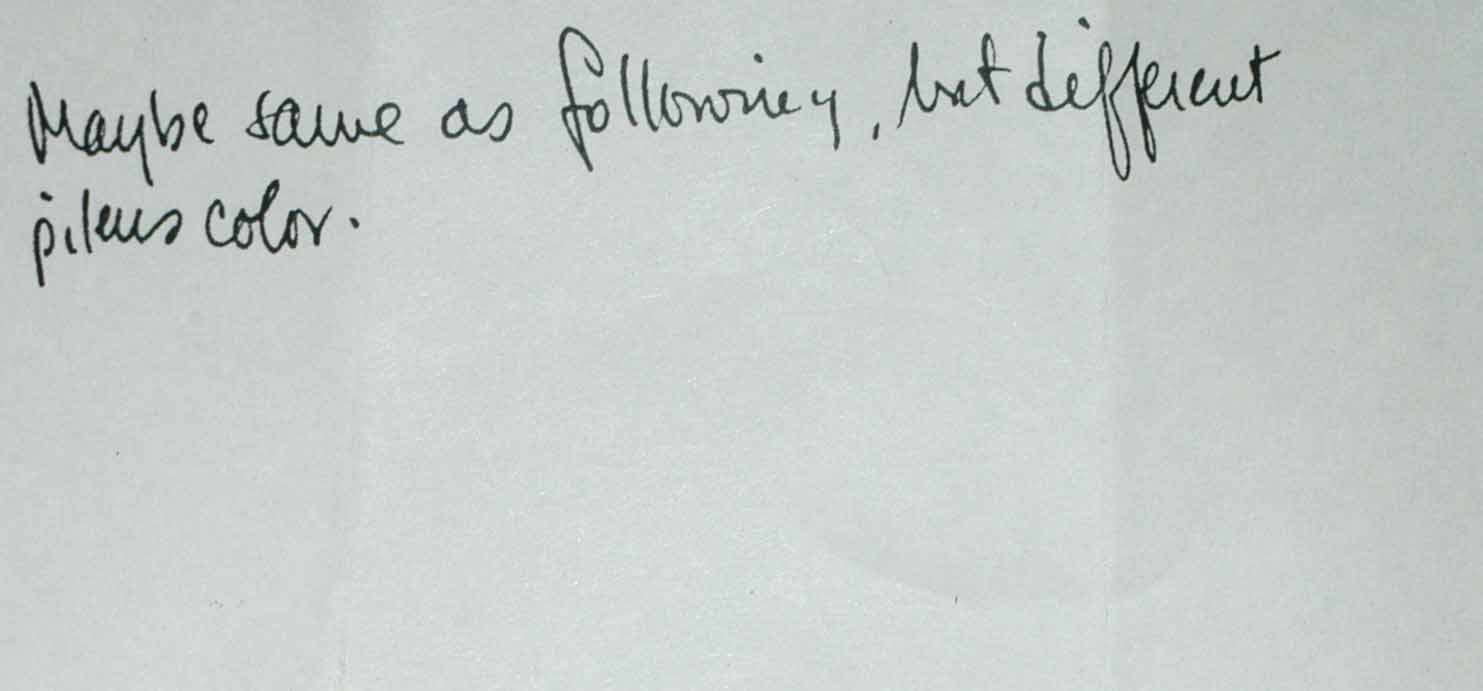 Maybe same as following, but different
pileus color.